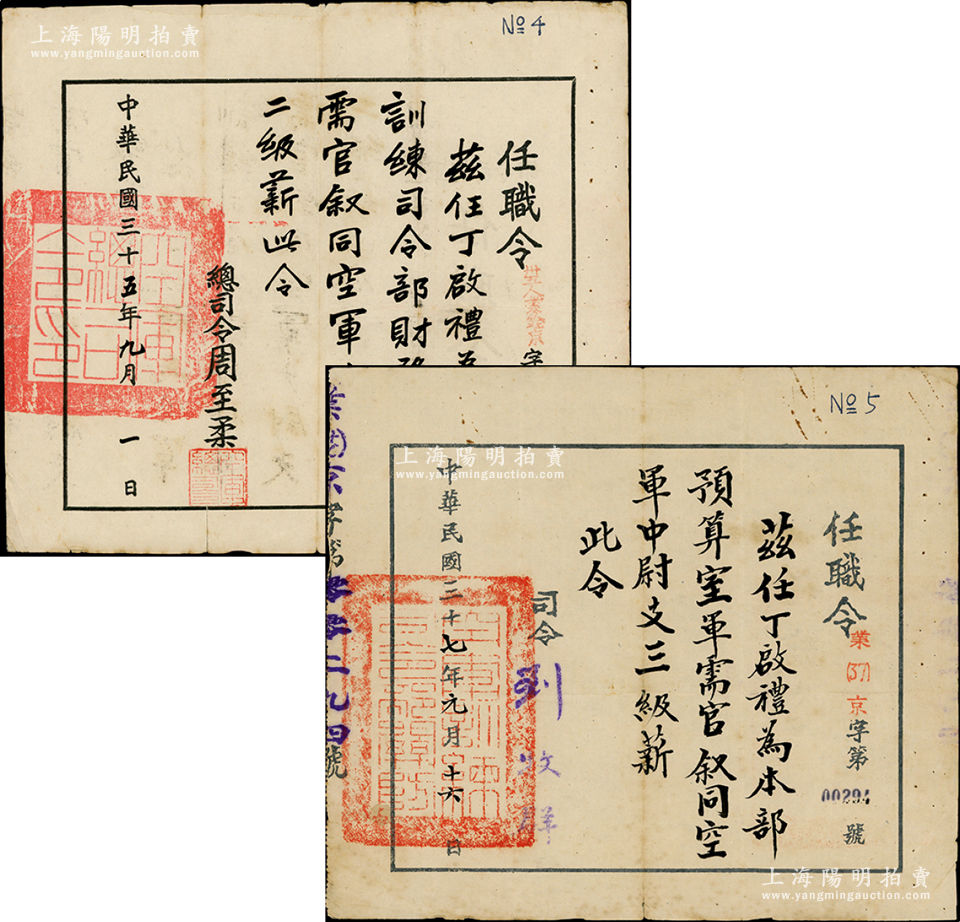 上海陽明拍賣
www.yangmingauction.com
№4
任職令
字
茲任丁啟禮為
訓練司令部財務
需官敘同空軍
二級薪此令
總司令周至柔
中華民國三十五年九月一日
№5
任職令
業(37)京字第00294號
茲任丁啟禮為本部
預算室軍需官敘同空
軍中尉支三級薪
此令
司令 劉牧群
中華民國三十七年元月十六日
上海陽明拍賣
www.yangmingauction.com
上海陽明拍賣
www.yangmingauction.com